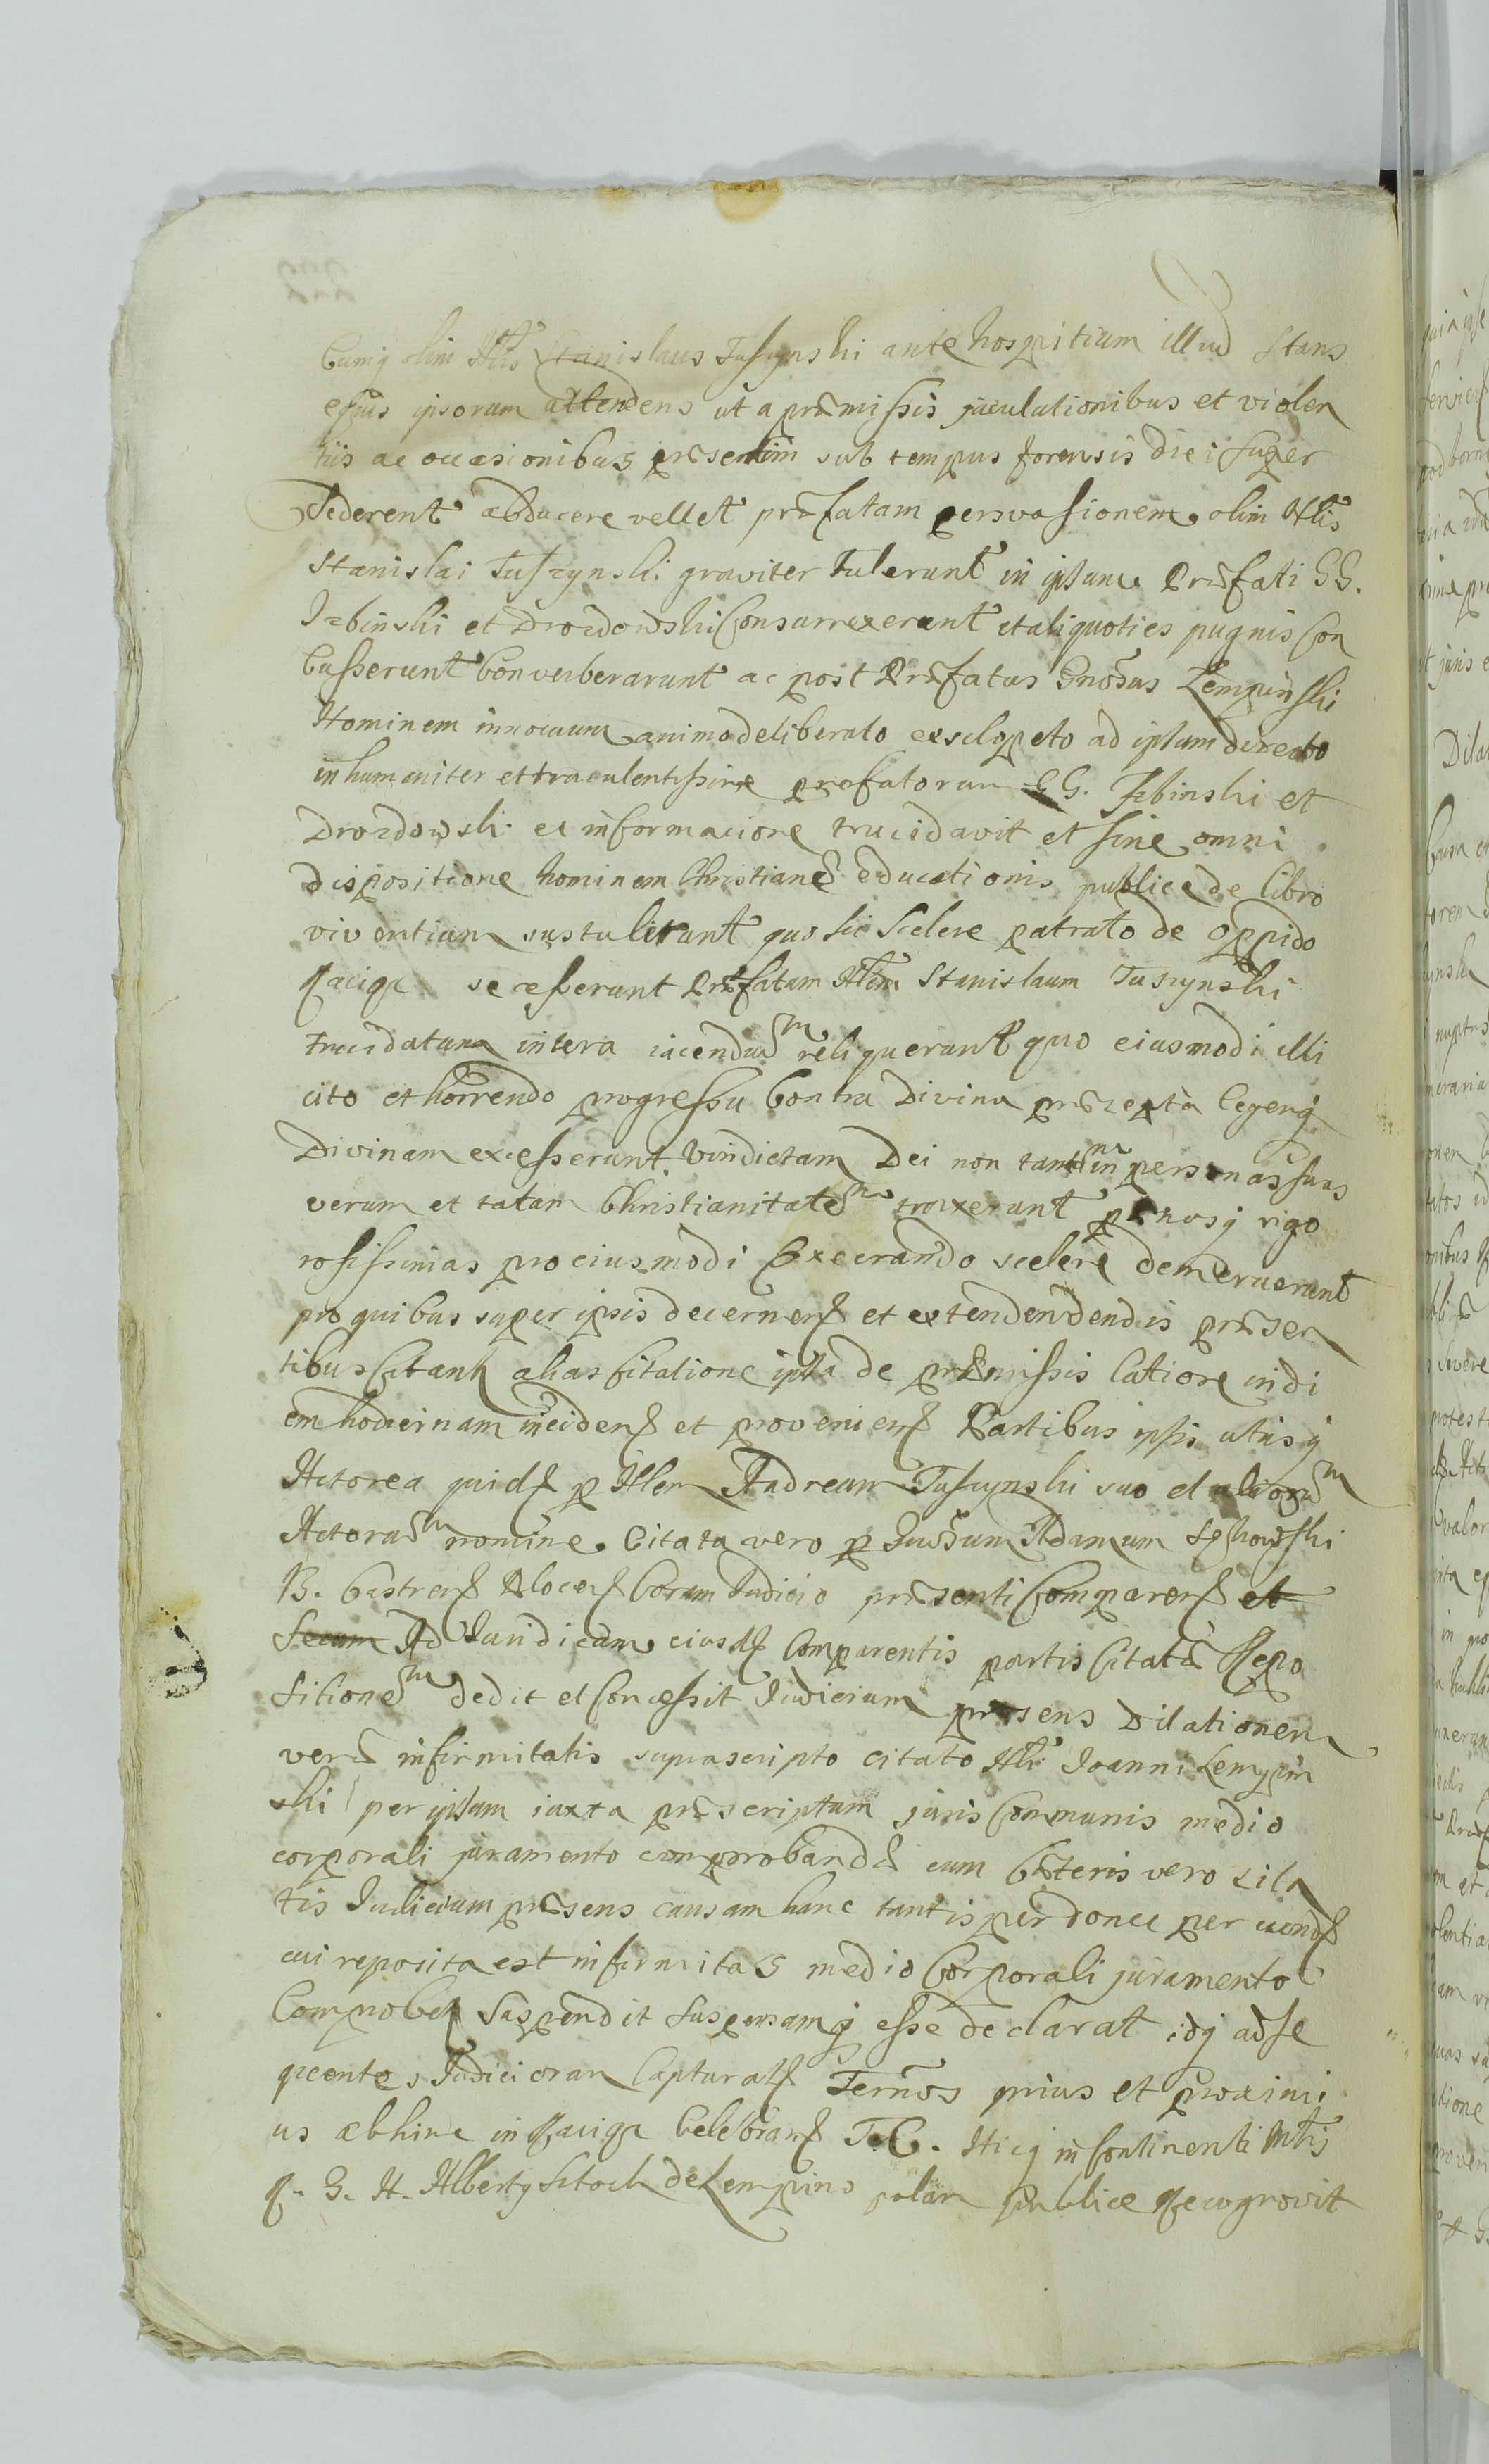 Cumq olim Nlis Stanislaus Tuszynski ante hospitium illud stans
ejus ipsorum attendens ut a præmissis jaculationibus et violen
tiis ac occasionibus præsertim sub tempus forensis diei super
sederent abducere vellet præfatam persvasionem olim Nlis
Stanislai Tuszynski graviter tulerunt in ipsum Præfati GG.
Izbinski et Drozdowski Consurrexerunt et aliquoties pugnis Con
cusserunt Converberarunt ac post Præfatus Gnosus Lempinski
Hominem innocuum animo deliberato ex sclopeto ad ipsum directo
inhumaniter et truculentissime præfatorum GG. Izbinski et
Drozdowski ex informacione trucidavit et sine omni
dispositione hominem Christianæ educationis publice de libro
viventium sustulerunt quo sic scelere patrato de oppido
Raciąż secesserunt Præfatum Nlem Stanislaum Tuszynski
trucidatum in tera iacendum reliquerunt quo eiusmodi illi
cito et horrendo progressu Contra Divina præcepta Legemq
Divinam excesserunt Vindictam Dei non tantum in personas suas
verum et totam Christianitatem traxerunt pænasq rigo
rosissimas pro eiusmodi Execrando scelere demeruerunt
pro quibus super ipsis decernen et extendendendis præsen
tibus Citant alias Citatione ipsa de præmissis latiore in di
em hodiernam inciden et provenien Partibus ipsis utrisq
Actorea quid p Nlem Andream Tuszynski suo et aliorum
Actorum nomine Citata vero p Gnosum Adamum
B. Castren Plocen Coram Judicio præsenti Comparen et
secum Ad Juridicam eiusd Comparentis partis Citatæ Repo
sitionem dedit et Concessit Judicium præsens Dilationem
veræ infirmitatis suprascripto citato Nli Joanni Lempin
ski per ipsum iuxta præscriptum juris Communis medio
corporali juramento comprobandæ cum Cæteris vero Cita
tis Judicium præsens causam hanc tantisper donec per eund
cui reposita est infirmitas medio Corporali juramento
Comprobet suspendit suspensamq esse declarat idq ad se
quentes Judiciorum Captural Termos prius et proximi
us abhinc in Raciąż Celebran T. C. Hicq in Continenti Mtis
R. G. N. Albertq Ktoch de Lempino palam publice Recognovit